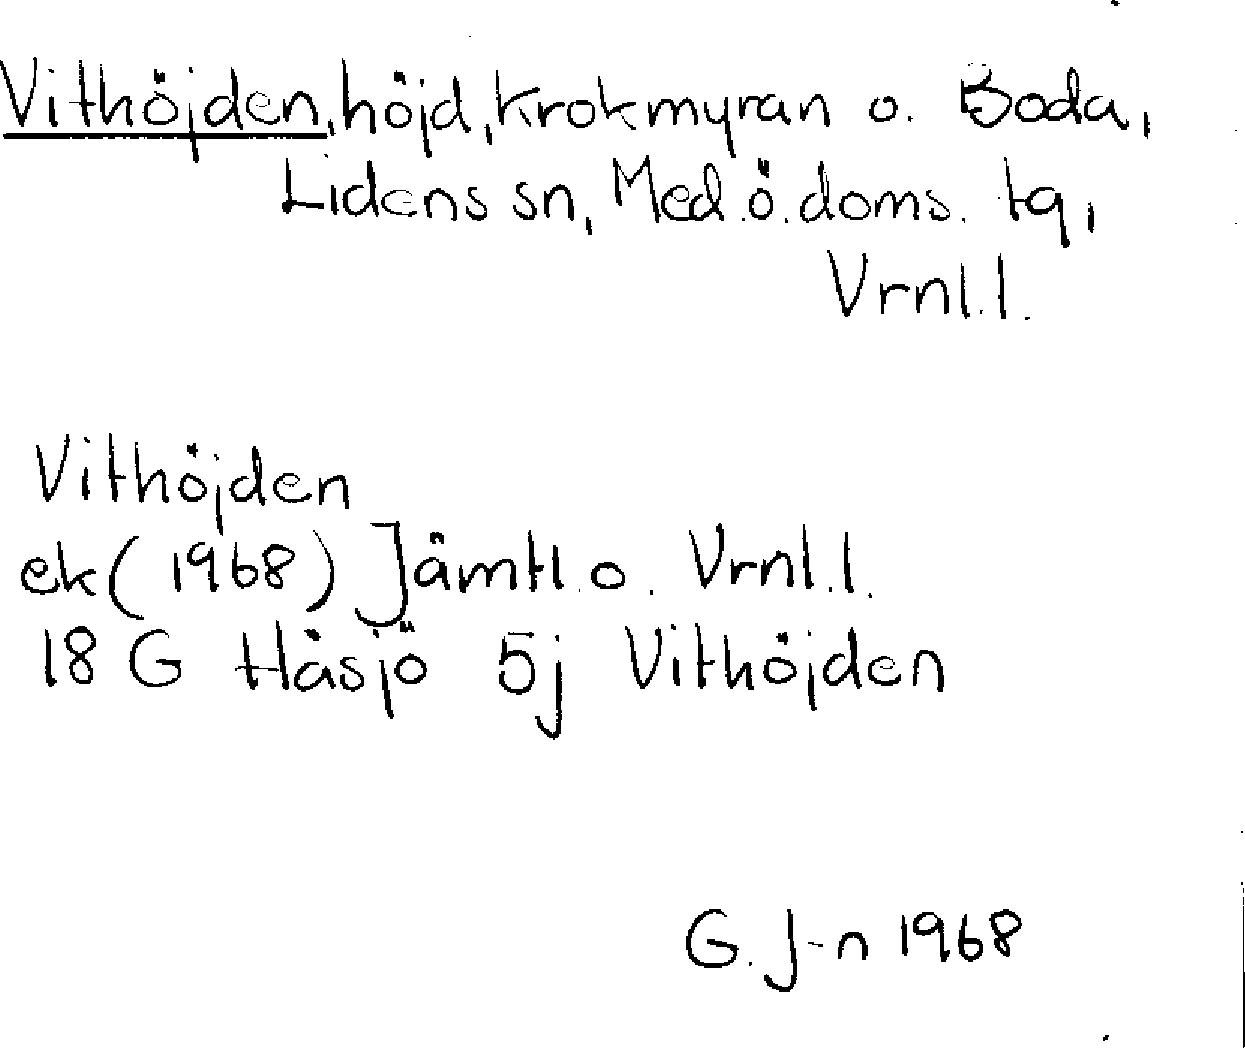 Vithöjden, höjd, Krokmyran o. Boda,
Lidens sn, Med.ö.doms. tg,
Vrnl.l.
Vithöjden
ek (1968) Jämtl. o. Vrnl.l.
18 G Håsjö 5j Vithöjden
G. J-n 1968